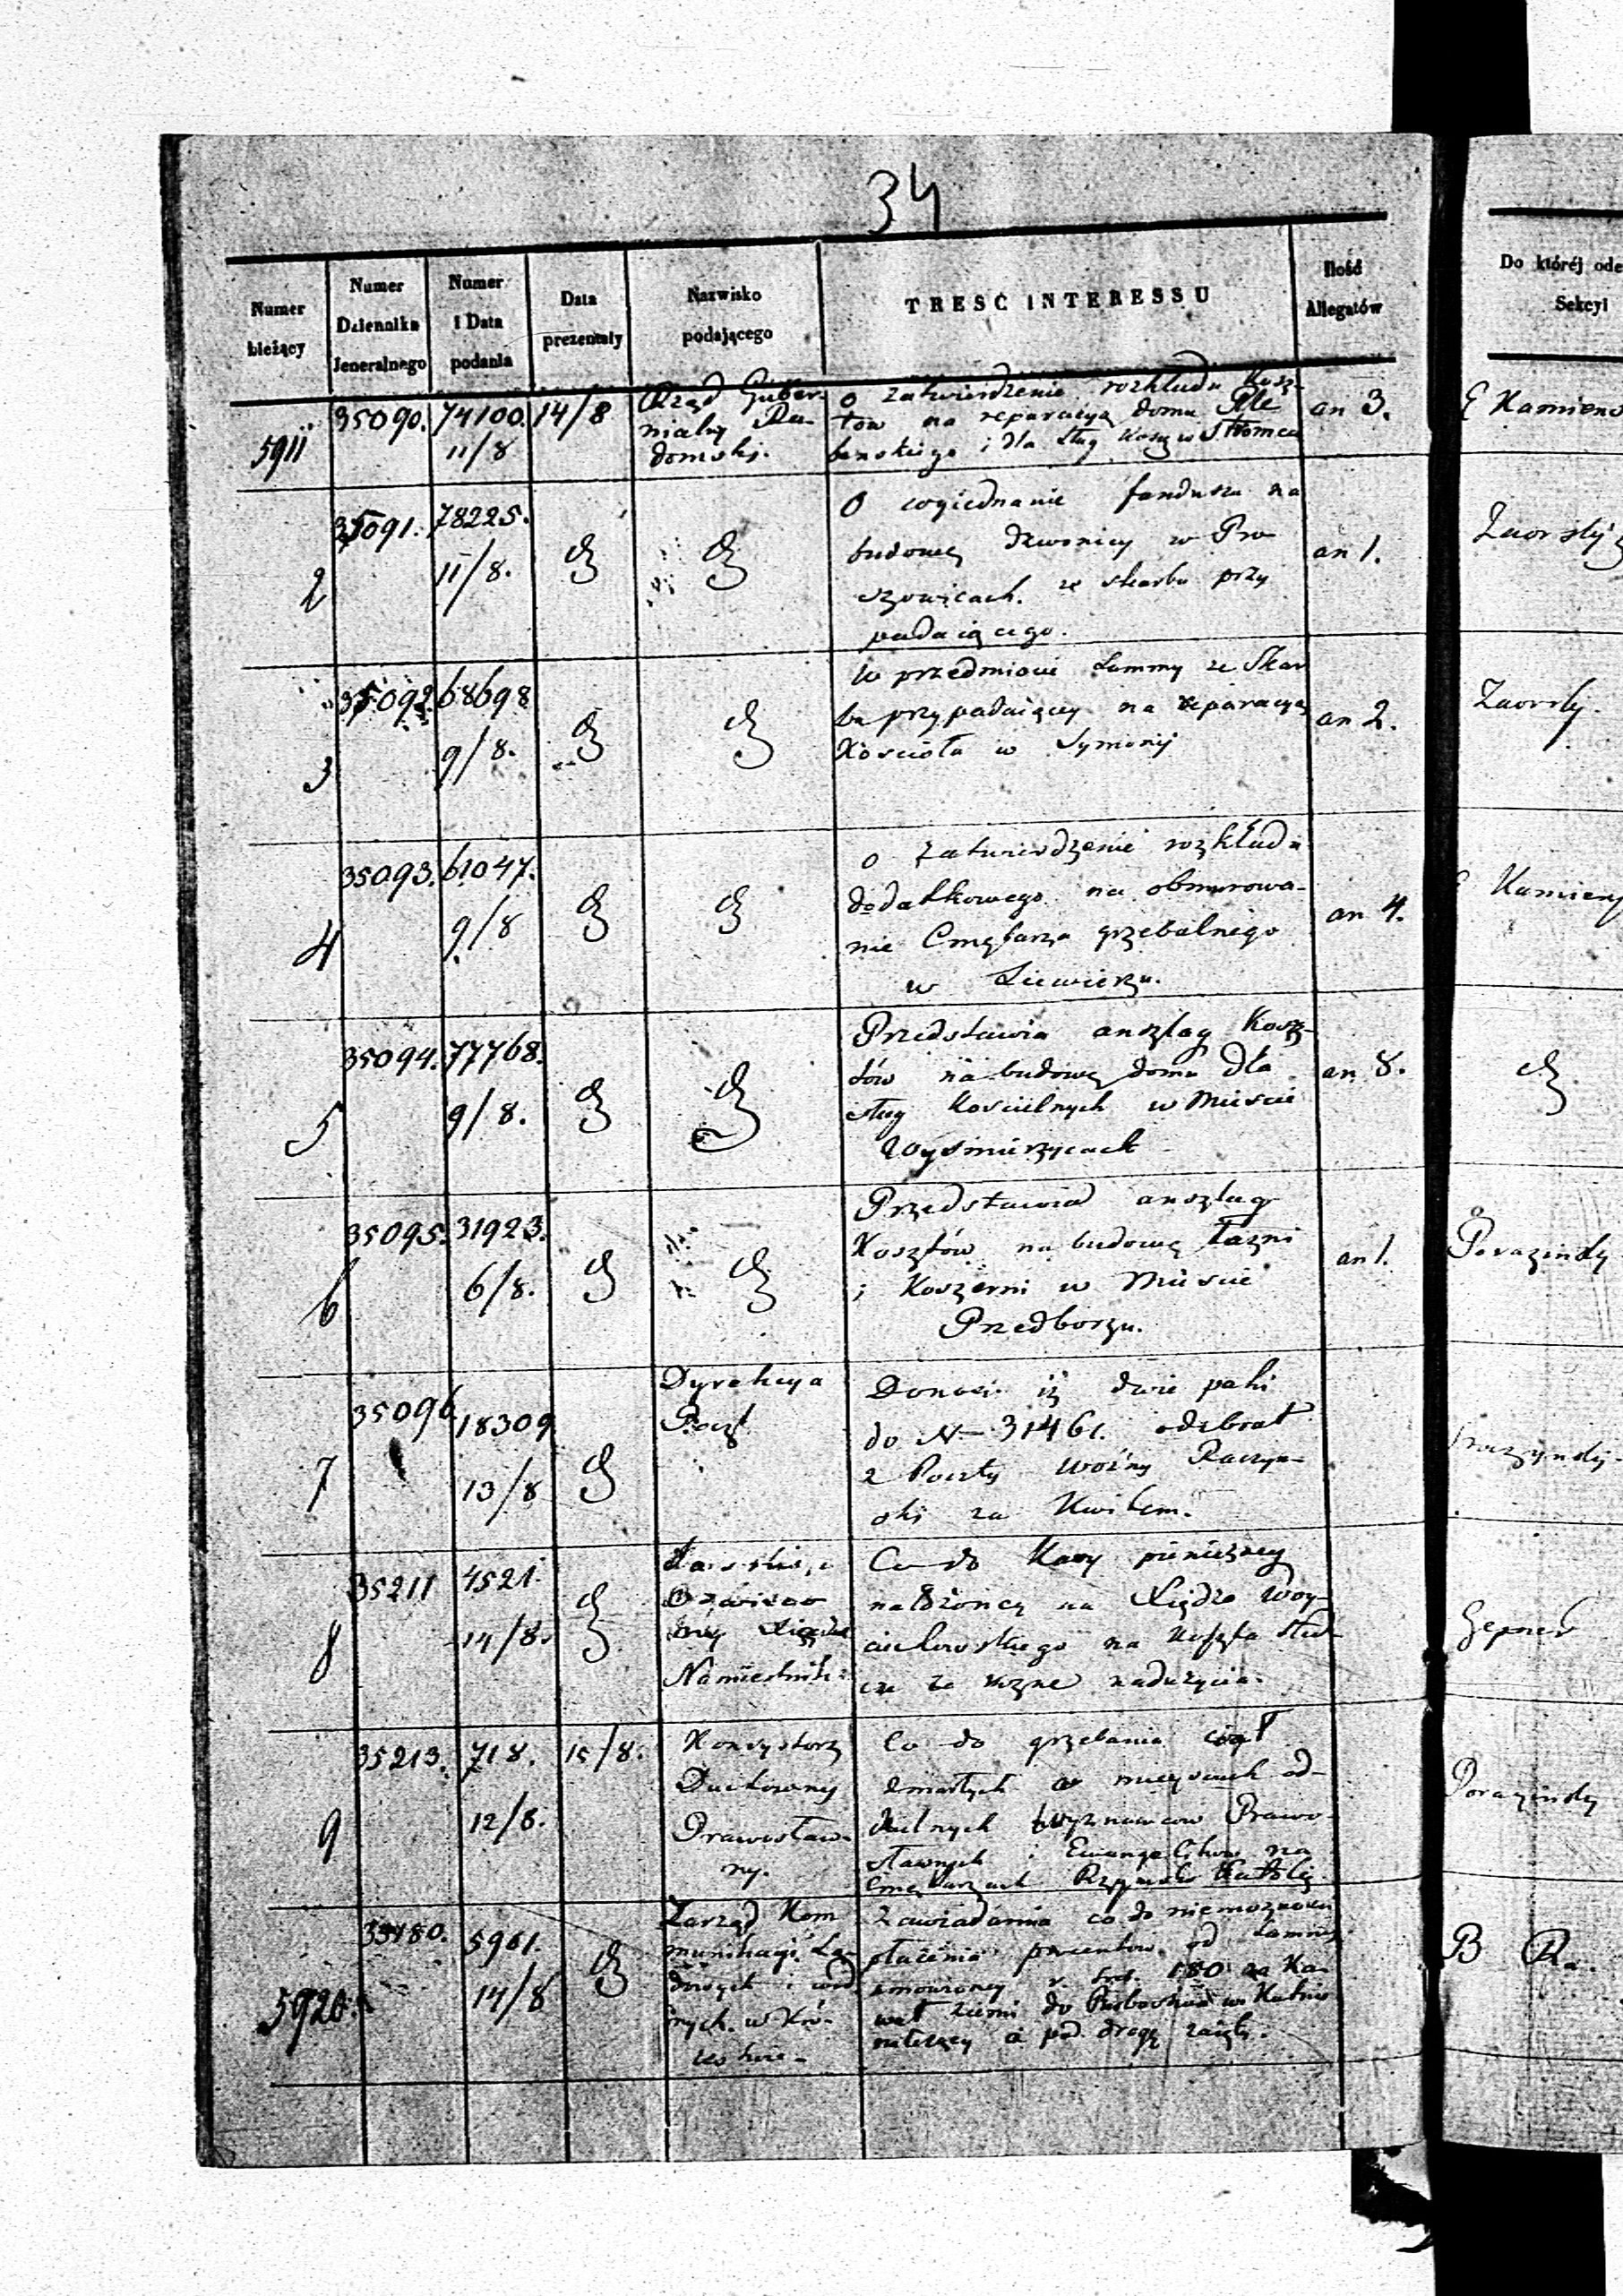 34
Numer bieżący
Numer Dziennika Jeneralnego
Numer i Data podania
Data prezentaty
Nazwisko podającego
TRESC INTERESSU
Ilość Allegatów
Do któréj ode
Sekcyi
5911
35090.
74100.
11/8
14/8
Rząd Guber-
nialny Ra-
domski.
o zatwierdzenie rozkładu Kosz-
tow na reparacyą domu Ple
banskiego i dla sług Kosc w
an 3.
2
35091.
78225.
11/8.
O wyiednanie funduszu na
budowę dzwonicy w Pro-
szowicach. ze skarbu przy
padaiącego.
an 1.
3
35092.
68698
9/8.
W przedmiocie Summy ze Skar
bu przypadaiącey na reparacyą
Kościoła w
an 2.
4
35093.
61047.
9/8
o zatwierdzenie rozkładu
dodatkowego na obmurowa-
nie Cmętarza grzebalnego
w Siewierzu.
an 4.
5
35094.
77768.
9/8.
Przedstawia anszlag Kosz-
tów na budowę domu dla
sług Koscielnych w Miescie
Wyśmierzycach
an 8.
6
35095.
31923.
6/8.
Przedstawia anszlag
Kosztów na budowę łazni
i Koszerni w Miescie
Przedborzu.
an 1.
7
35096
18309
13/8
Dyrekcya
Poczt
Donosi iż dwie paki
do N- 31461. odebrał
z Poczty Woźny Raczyn-
ski za Kwitem.
8
35211
4521.
14/8.
Namiestnik
Co do Kary pienięzney
nałożoney na Xiędza Woy-
ciechowskiego na Koszta
za rozne nadużycia.
9
35213.
718.
12/8.
15/8.
Konsystorz
Duchowny
Prawosław-
ny.
Co do grzebania ciał
zmarłych w mieyscach od-
dzielnych wyznawcow Prawo-
sławnych i Ewangelikow na
Cmętarzach Rzymsko Katolic.
5920.
5961.
14/8
Zarząd Kom
munikacyi Lą-
dowych i wod
nych. w Kró-
lestwie-
Zawiadamia co do niemoznosci
płacenia procentow od Summy
180 za Ka-
wał ziemi do Probostwa w Kutnie
należący a pod drogę zaięty.
B